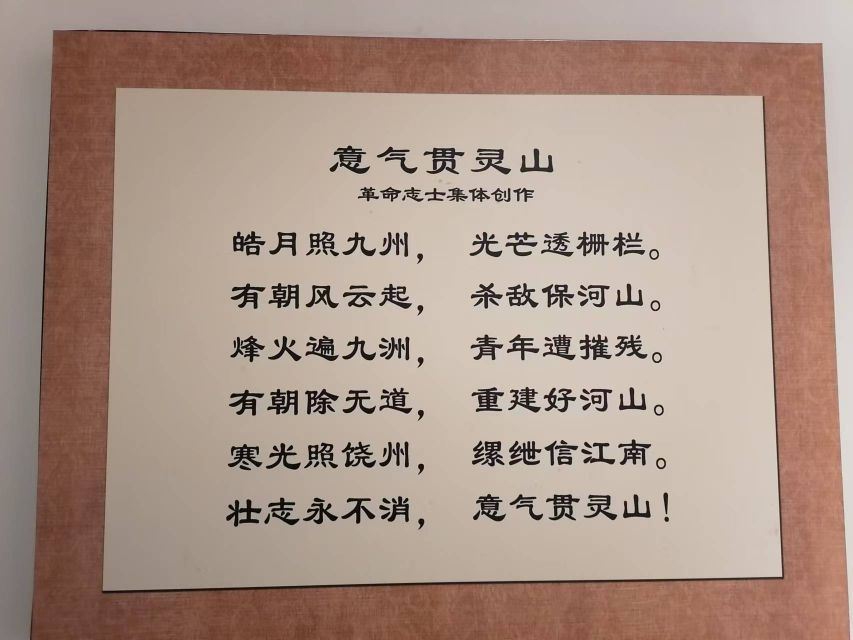 意气贯灵山
革命志士集体创作
皓月照九州， 光芒透栅栏。
有朝风云起， 杀敌保河山。
烽火遍九洲， 青年遭摧残。
有朝除无道， 重建好河山。
寒光照饶州， 缧绁信江南。
壮志永不消， 意气贯灵山！